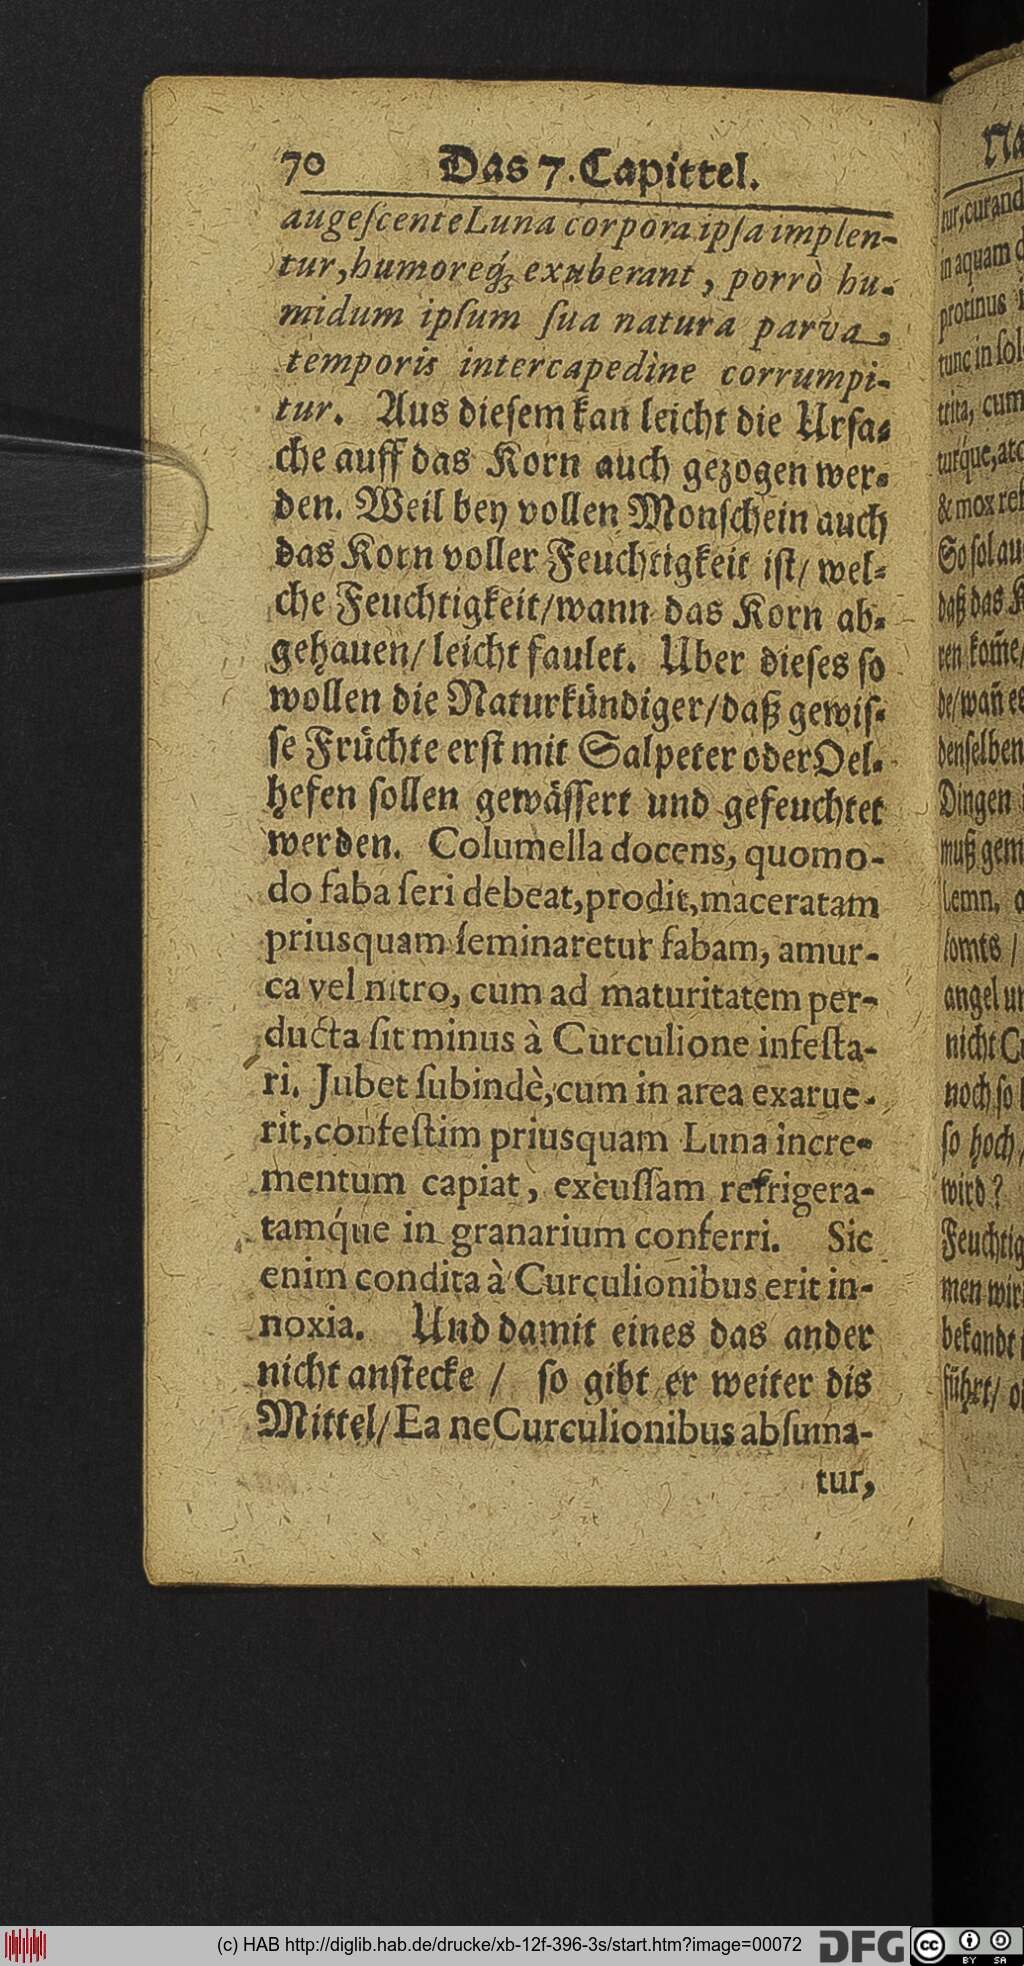 70 Das 7. Capittel.
augeſcente Luna corpora ipſa implen-
tur, humoreq́; exuberant, porrò hu-
midum ipſum ſua natura parva,
temporis intercapedìne corrumpi-
tur. Aus dieſem kan leicht die Urſa-
che auff das Korn auch gezogen wer-
den. Weil bey vollen Monſchein auch
das Korn voller Feuchtigkeit iſt/ wel-
che Feuchtigkeit/ wann das Korn ab-
gehauen/ leicht faulet. Uber dieſes ſo
wollen die Naturkündiger/ daß gewiſ-
ſe Früchte erſt mit Salpeter oder Oel-
hefen ſollen gewäſſert und gefeuchtet
werden. Columella docens, quomo-
do faba ſeri debeat, prodit, maceratam
priusquam ſeminaretur fabam, amur-
ca vel nitro, cum ad maturitatem per-
ducta ſit minus à Curculione infeſta-
ri. Jubet ſubindè, cum in area exarue-
rit, confeſtim priusquam Luna incre-
mentum capiat, excuſſam refrigera-
tamq́ue in granarium conferri. Sic
enim condita à Curculionibus erit in-
noxia. Und damit eines das ander
nicht anſtecke / ſo gibt er weiter dis
Mittel/ Ea ne Curculionibus abſuma-
tur,
Na
tur, curand
in aquam
protinus
tunc in ſol
trita, cum
turq́ue, at
& mox re
So ſol au
daß das K
ren kom̃e/
de/ wañ e
denſelben
Dingen
muß gem
ſomts /
angel u
nicht C
noch ſo
ſo hoch,
wird?
Feuchtig
men wir
bekandt
führt/ o
(c) HAB http://diglib.hab.de/drucke/xb-12f-396-3s/start.htm?image=00072
DFG
cc BY SA